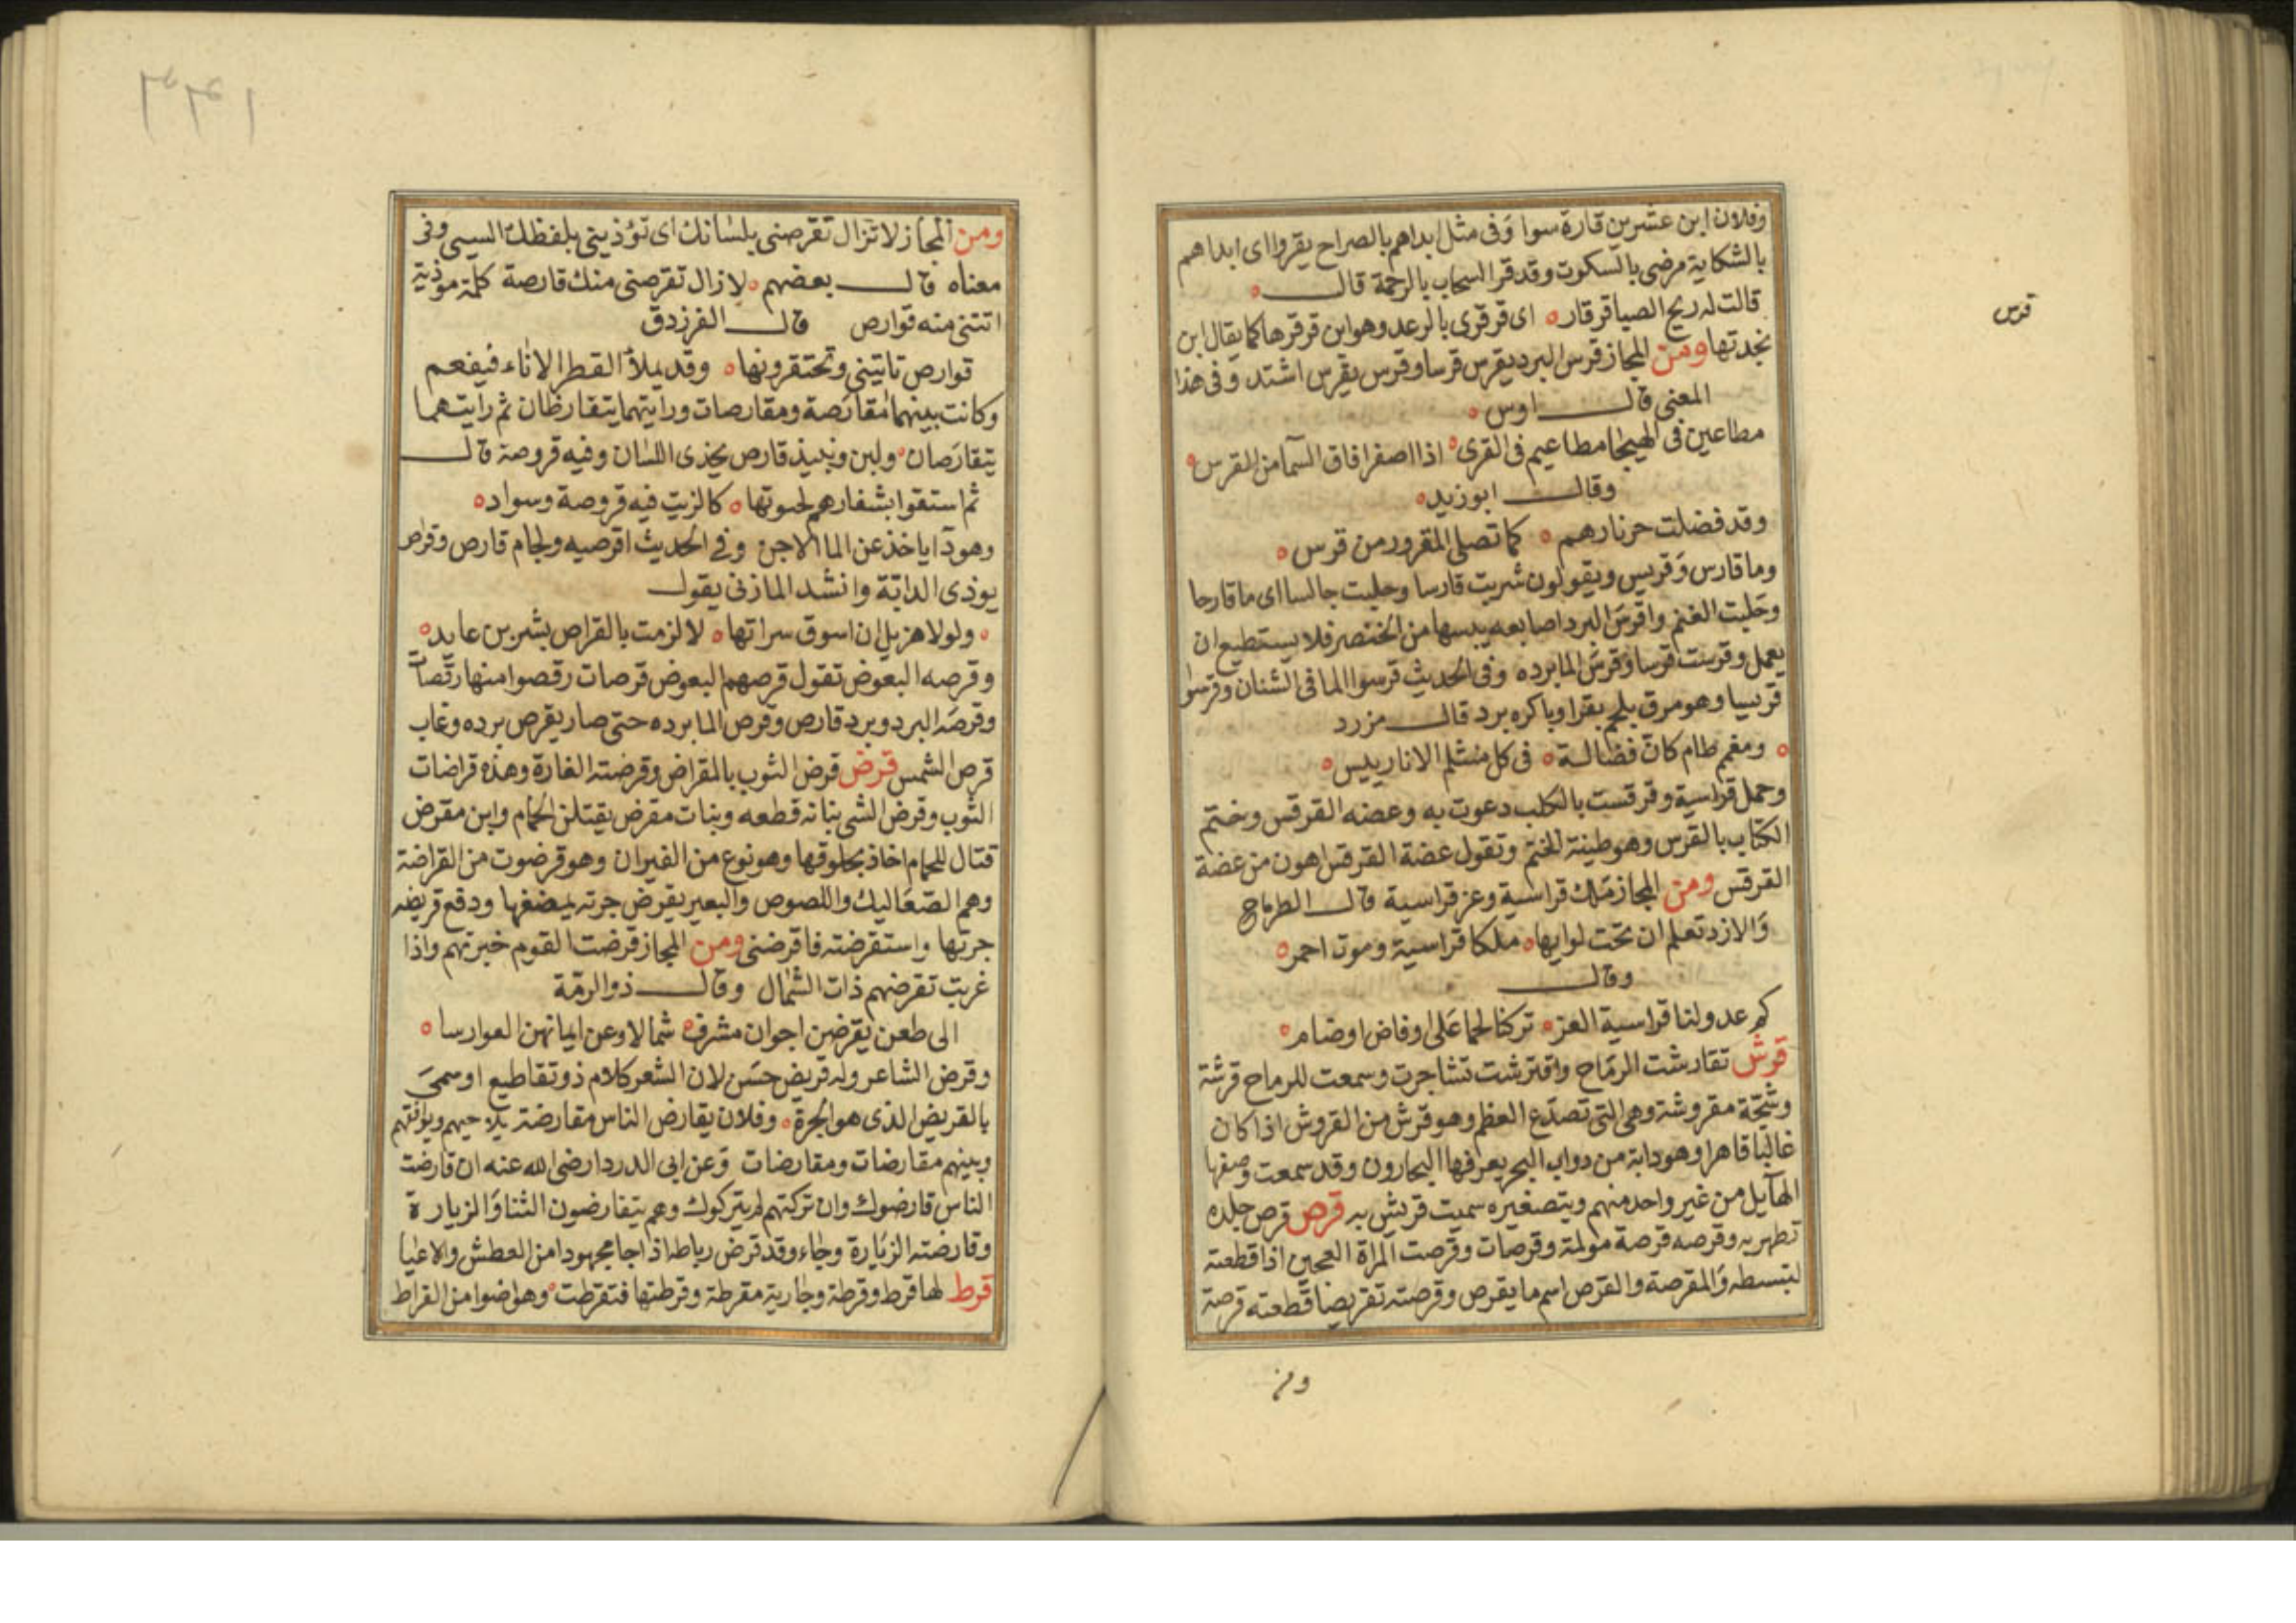 وفلان ابن عشرين قارة سوا وفى مثل ابداهم بالصراح يقروا اى ابداهم
بالشكاية مرضى بالسكوت وقد قرا السحاب بالرحمة قال
قالت له ريح الصبا قرقار ه اى قرقرى بالرعد وهو ابن قرقرها كما يقال ابن
بجدتها ومن المجاز قرس البرد يقرس قرسا وقرس يقرس اشتد وفى هذا
المعنى قال اوس ه
مطاعين فى الهيجا مطاعيم فى القرى ه اذا اصفر افاق السما من القرس ه
وقال ابو زيد ه
وقد فضلت حر نارهم ه كما تصلى المقرور من قرس ه
وما قارس وقريس ويقولون شربت قارسا وحلبت جالسا اى ما قارحا
وحلبت الغنم واقرس البرد اصابعه يبسها من الخنصر فلا يستطيع ان
يعمل وقرست قرسا وقرس الما برده وفى الحديث قرسوا الما فى الشنان وقرسوا
قريسا وهو مرق بلحم بقر او باكره برد قال مزرد
ه ومغمم طام كان فضالة ه فى كل منثلم الانا ريليس ه
وحمل قراسية وقرقست بالكلب دعوت به وعضه القرقس وختم
الكتاب بالقرس وهو طينة الختم وتقول عضة القرقس اهون من عضة
القرقس ومن المجاز ملك قراسية وعز قراسية قال الطرماح
والازد تعلم ان تحت لوايها ه ملكا قراسية وموت احمر ه
وقال
كم عدو لنا قراسية العز ه تركنا لحما على اوفاض اوضام ه
قرش تقارشت الرماح واقترشت تشاجرت وسمعت للرماح قرشة
وشجة مقروشة وهى التى تصدع العظم وهو قرش من القروش اذا كان
غالبا قاهرا وهو دابة من دواب البحر يعرفها البحارون وقد سمعت وصفها
الهايل من غير واحد منهم وبتصغيره سميت قريش به قرص قرص جلده
تطهر به وقرصه قرصة مولمة وقرصات وقرصت المراة العجين اذا قطعته
لتبسطه والمقرصة والقرص اسم ما يقرص وقرصته تقريصا قطعته قرصة
ومن
قرس
١٣٣
ومن المجاز لا تزال تقرصنى بلسانك اى تؤذينى بلفظك السيى وفى
معناه قال بعضهم ه لا زال تقرصنى منك قارصة كلمة موذية
اتتنى منه قوارص قال الفرزدق
قوارص تاتينى وتحتقرونها ه وقد يملأ القطر الاناء فيفعم
وكانت بينهما مقارصة ومقارصات ورايتهما يتقارظان ثم رايتهما
يتقارصان ه ولبن ونبيذ قارص يحذى اللسان وفيه قروصة قال
ثم استقوا بشفارهم لحبوتها ه كالزيت فيه قروصة وسواد ه
وهو داياخذ عن الما الاجن وفى الحديث اقرصيه ولجام قارص وقراص
يوذى الدابة وانشد المازنى يقول
ه ولولا هزيل ان اسوق سراتها ه لالزمت بالقراص بشر بن عايد ه
وقرصه البعوض تقول قرصهم البعوض قرصات رقصوا منها رقصات
وقرصه البرد وبرد قارص وقرص الما برده حتى صار يقرص برده وغاب
قرص الشمس قرض قرض الثوب بالمقراض وقرضته الفارة وهذه قراضات
الثوب وقرض الشى بنا نه قطعه وبنات مقرض يقتلن الحمام وابن مقرض
قتال للحمام اخاذ بحلوقها وهو نوع من الفيران وهو قرضوت من القراضة
وهم الصعاليك واللصوص والبعير يقرض جرته يمضغها ودقع قريضه
جرتها واستقرضته فاقرضنى ومن المجاز قرضت القوم خبرتهم واذا
غربت تقرضهم ذات الشمال وقال ذو الرمة
الى ظعن يقرضن اجوان مشرف ه شمالا وعن ايمانهن العوارسا ه
وقرض الشاعر وله قريض حسن لان الشعر كلام ذو تقاطيع او سمى
بالقريض الذى هو الجرة ه وفلان يقارض الناس مقارضة يلاحيهم ويوافقهم
وبينهم مقارضات ومقارضات وعن ابى الدردا رضى الله عنه ان قارضت
الناس قارضوك وان تركتهم لم يتركوك وهم يتقارضون الثنا والزيارة
وقارضته الزيارة وجاء وقد قرض رباطه اذا جا مجهودا من العطش والاعيا
قرط لها قرط وقرطة وجارية مقرطة وقرطتها فتقرطت ه وهو اضوا من القراط